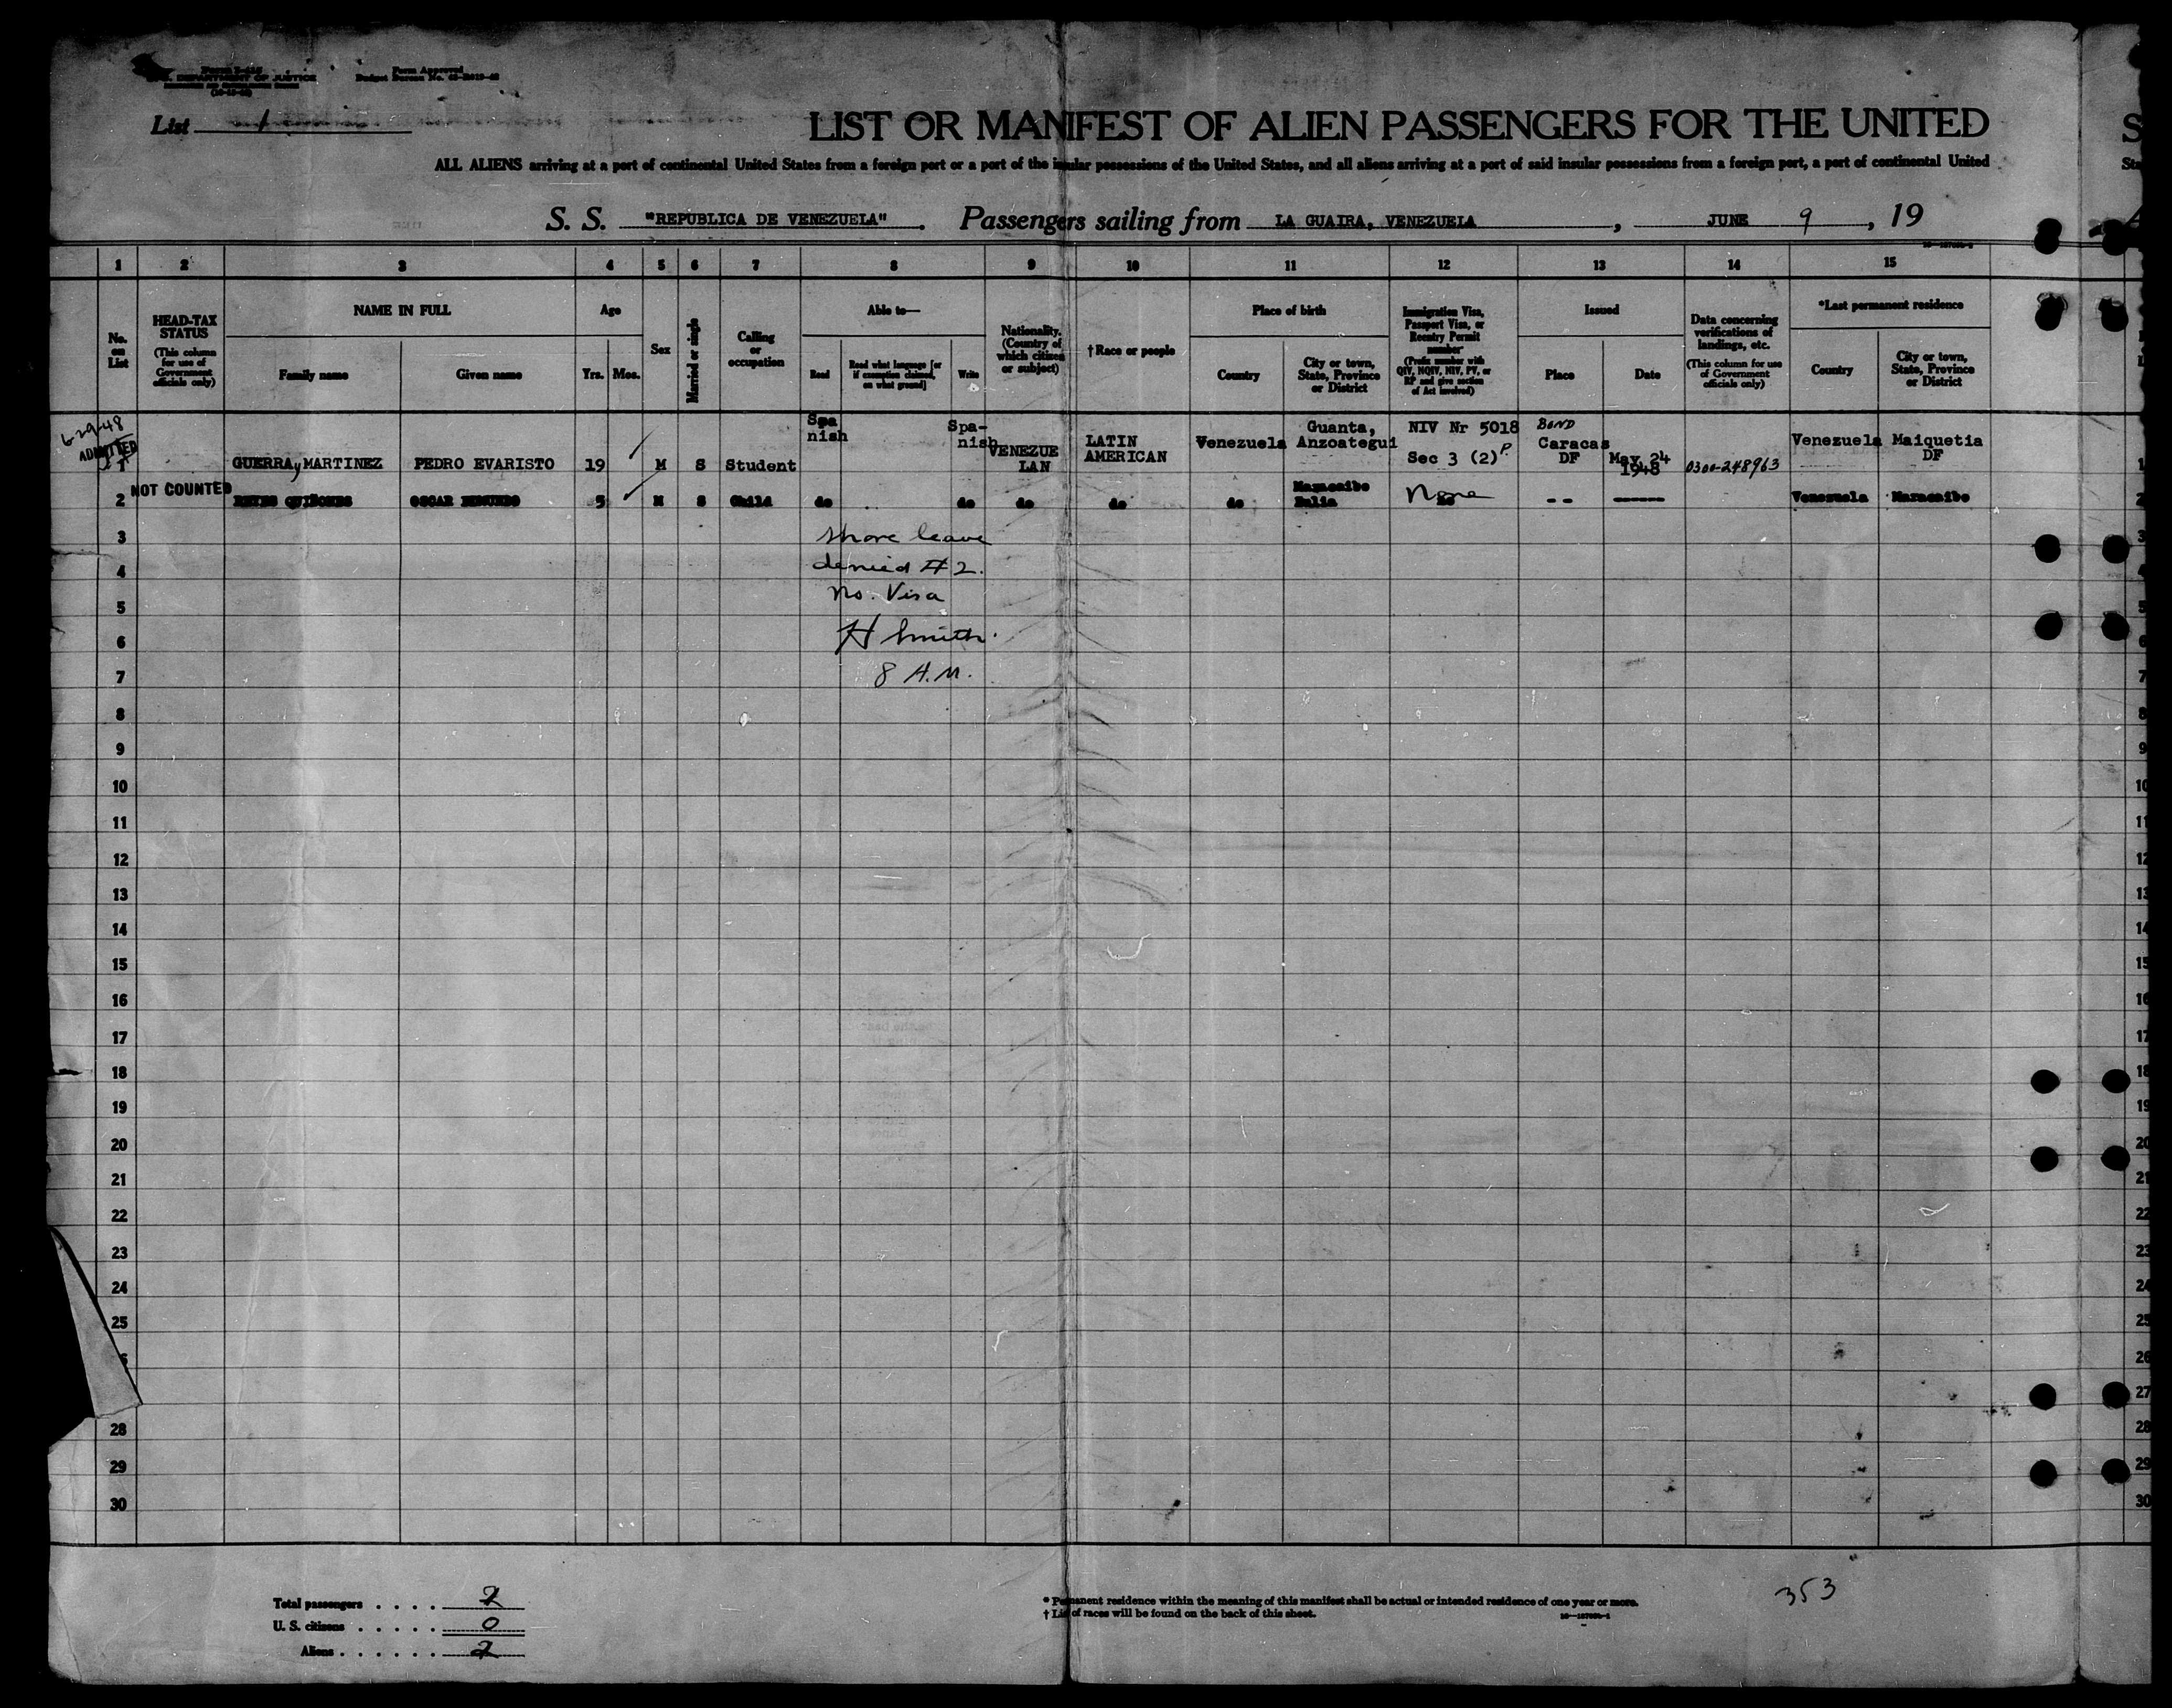 U. S. DEPARTMENT OF JUSTICE
Form Approved
List 1
LIST OR MANIFEST OF ALIEN PASSENGERS FOR THE UNITED
ALL ALIENS arriving at a port of continental United States from a foreign port or a port of the insular possessions of the United States, and all aliens arriving at a port of said insular possessions from a foreign port, a port of continental United
S. S. "REPUBLICA DE VENEZUELA". Passengers sailing from LA GUAIRA, VENEZUELA, JUNE 9, 19
1 2 3 4 5 6 7 8 9 10 11 12 13 14 15
No. on List
HEAD-TAX STATUS
(This column for use of Government officials only)
NAME IN FULL
Family name Given name
Age
Yrs. Mos.
Sex
Married or single
Calling or occupation
Able to—
Read
Read what language [or if exemption claimed, on what ground]
Write
Nationality. (Country of which citizen or subject)
†Race or people
Place of birth
Country
City or town, State, Province or District
Immigration Visa, Passport Visa, or Reentry Permit number
(Prefix number with QIV, NQIV, NIV, PV, or RP and give section of Act involved)
Issued
Place Date
Data concerning verifications of landings, etc.
(This column for use of Government officials only)
*Last permanent residence
Country
City or town, State, Province or District
6-29-48
ADMITTED
1 GUERRA y MARTINEZ PEDRO EVARISTO 19 M S Student Spa nish Spa-nish VENEZUE LAN LATIN AMERICAN Venezuela Guanta, Anzoategui NIV Nr 5018 Sec 3 (2) P. BOND Caracas DF May 24 1948 0300-248963 Venezuela Maiquetia DF 1
NOT COUNTED
2 REYES QUIÑONES OSCAR EDMUNDO 5 M S Child do do do do do Maracaibo Zulia None -- ------ Venezuela Maracaibo 2
3 shore leave 3
4 denied # 2. 4
5 no. Visa 5
6 H Smith. 6
7 8 A.M. 7
8 8
9 9
10 10
11 11
12 12
13 13
14 14
15 15
16 16
17 17
18 18
19 19
20 20
21 21
22 22
23 23
24 24
25 25
26
27
28 28
29 29
30 30
Total passengers . . . . 2
U. S. citizens . . . . . 0
Aliens . . . . . . 2
* Permanent residence within the meaning of this manifest shall be actual or intended residence of one year or more.
† List of races will be found on the back of this sheet.
353